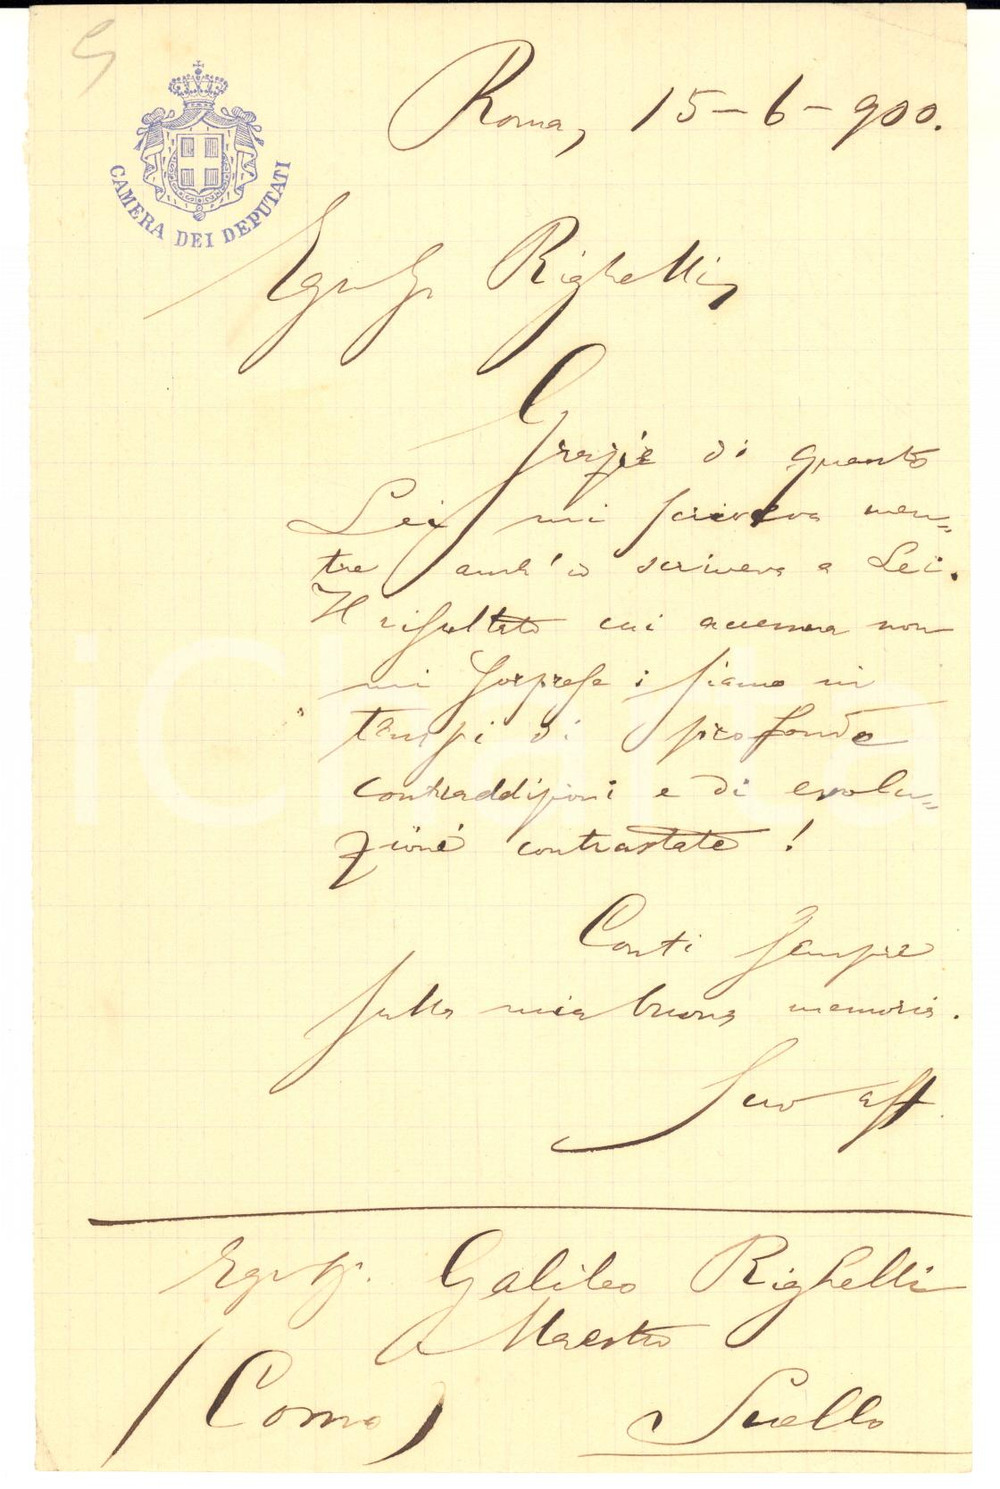 Roma, 15-6-900.
CAMERA DEI DEPUTATI
Egr. Sr. Righelli,
Grazie di quanto
Lei mi scriveva men=
tre anch'io scriveva a Lei.
Il risultato cui accenna non
mi sorprese; siamo in
tempi di profonde
contraddizioni e di evolu=
zioni contrastate!
Conti sempre
sulla mia buona memoria.
Suo aff.
Egr. Sr. Galileo Righelli
Maestro
(Como) Suello
iCharta